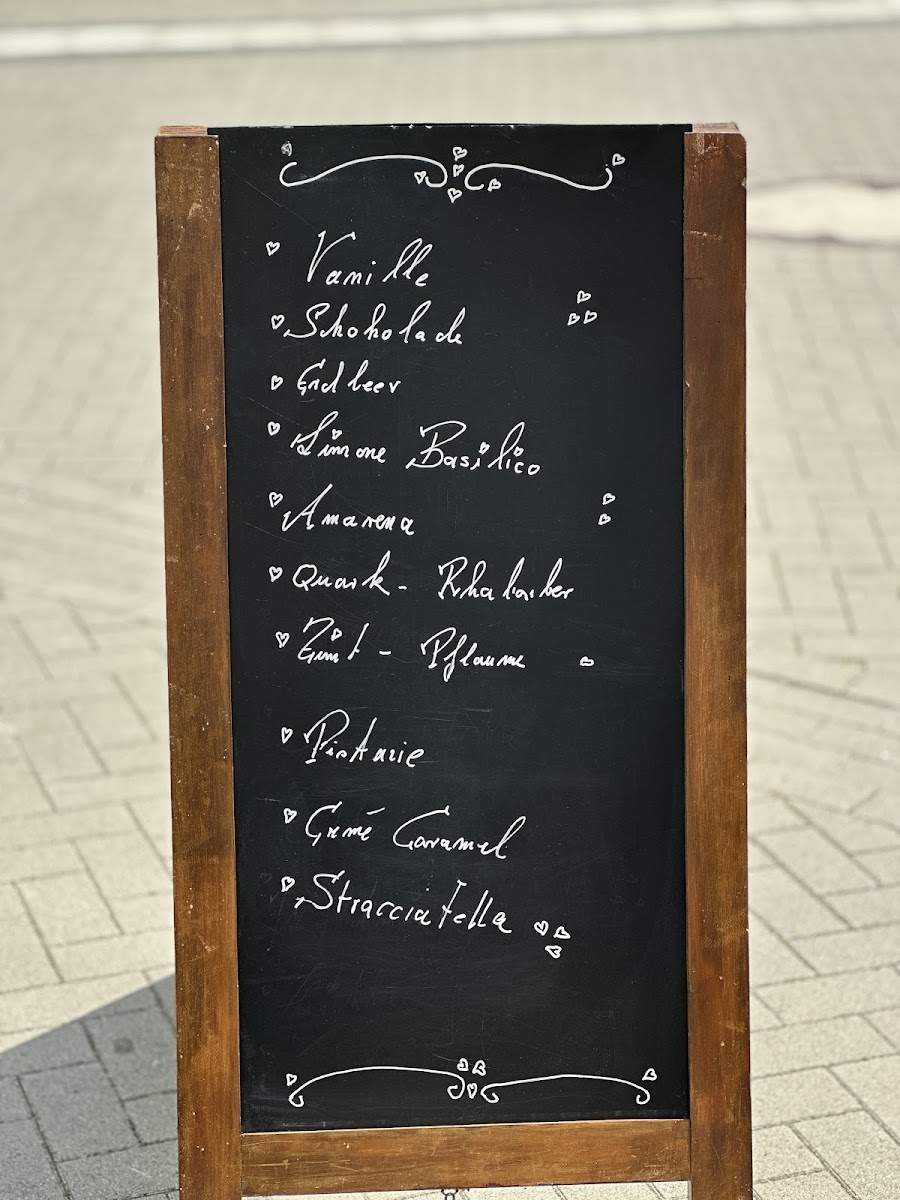 Vanille
Schokolade
Erdbeer
Limone Basilico
Amarena
Quark - Rhabarber
Zimt - Pflaume
Pistazie
Cremé Caramel
Stracciatella